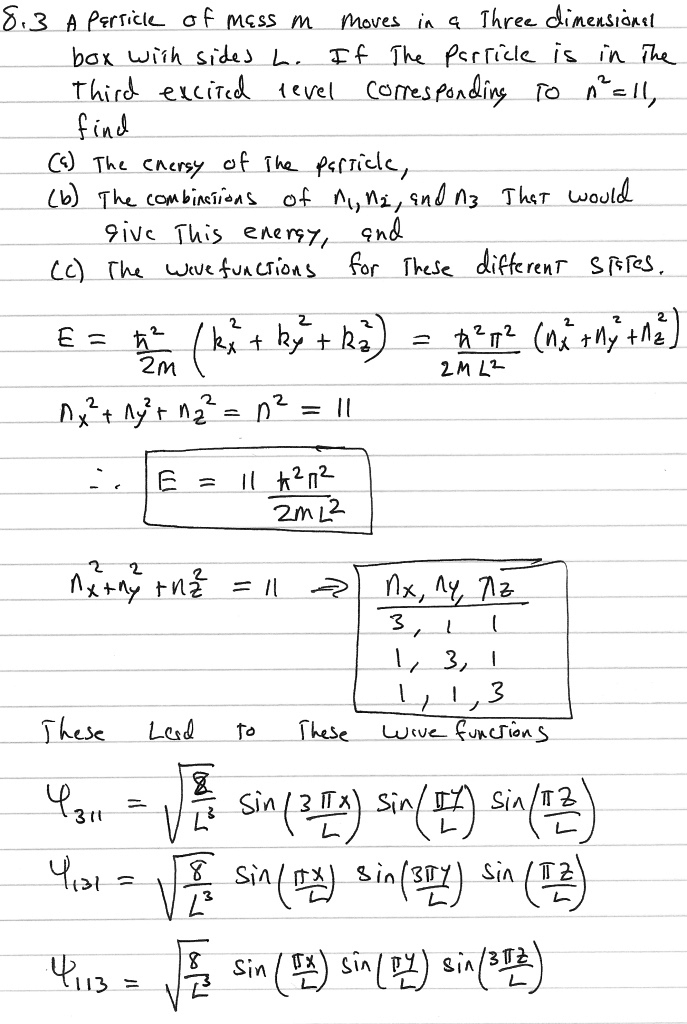 8.3 A particle of mass m moves in a Three dimensional
box with sides L. If The particle is in The
Third excited level corresponding To n²=11,
find
(a) The energy of The particle,
(b) The combinations of n₁, n₂, and n₃ That would
give This energy, and
(c) The wavefunctions for These different states.
E = ħ²/2m (kx² + ky² + kz²) = ħ²π²/2mL² (nx² + ny² + nz²)
nx² + ny² + nz² = n² = 11
∴ E = 11 ħ²π²/2mL²
nx² + ny² + nz² = 11 ⇒ nx, ny, nz
3, 1 1
1, 3, 1
1, 1, 3
These Lead To These wave functions
Ψ₃₁₁ = √(8/L³) sin(3πx/L) sin(πy/L) sin(πz/L)
Ψ₁₃₁ = √(8/L³) sin(πx/L) sin(3πy/L) sin(πz/L)
Ψ₁₁₃ = √(8/L³) sin(πx/L) sin(πy/L) sin(3πz/L)